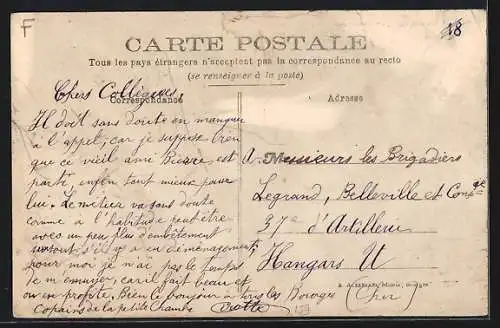 F
18
CARTE POSTALE
Tous les pays étrangers n'acceptent pas la correspondance au recto
(se renseigner à la poste)
Correspondance
Adresse
Chers Collègues,
Il doit sans doute en manquer
à l'appel; car je suppose bien
que ce vieil ami Pierre est
parti, enfin tant mieux pour
lui. Le métier va sans doute
comme à l'habitude peut-être
avec un peu plus d'embêtement
surtout s'il y a en déménagement
pour moi je n'ai pas le temps
de m'ennuyer, car il fait beau et
on en profite. Bien le bonjour à tous les
Copains de la petite Chambre
A Messieurs les Brigadiers
Legrand, Belleville et Comp
37e d'Artillerie
Hangars U
Bourges
(Cher)